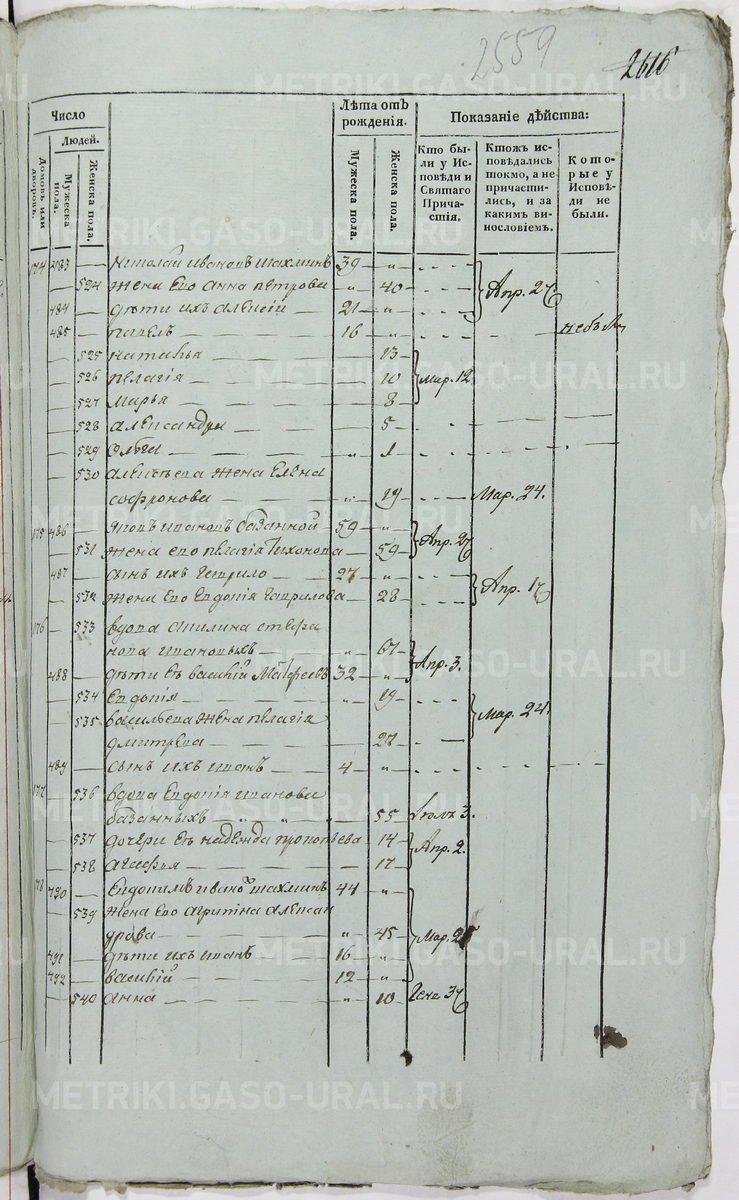 2559
2616
Число
Лѣта отъ рожденія.
Показаніе дѣйства:
Людей.
Домовъ или дворовъ.
Мужеска пола.
Женска пола.
Мужеска пола.
Женска пола.
Кто были у Исповѣди и Святаго Причастія.
Ктожъ исповѣдались токмо, а не причастились, и за какимъ винословіемъ.
Которые у Исповѣди не были.
174 483 — Николай Ивановъ Шахминъ 39 — „
524 Жена его Анна Петрова „ 40 Апр. 27.
484 — дѣти ихъ Алексій 21 — „
485 — Павелъ 16 — „
525 Наталья 13
526 Пелагія 10 Мар. 12
527 Марья 8
528 Александра 5
529 Ольга „ 1
530 Алексѣева жена Елена
Софронова „ 19 Мар. 24.
175 486 — Яковъ Ивановъ Базанной 59 — „
531 Жена его Пелагія Тихонова 59 Апр. 27
487 — сынъ ихъ Гаврило 27 — „
532 Жена его Евдокія Гаврилова 28 Апр. 17
176 533 вдова Акилина Стефа
нова Ивановыхъ „ 67
488 — дѣти еѣ Василій Матфеевъ 32 — „ Апр. 3.
534 Евдокія „ 19
535 Васильева жена Пелагія Мар. 24.
Дмитрева 27
489 — сынъ ихъ Иванъ 4 — „
177 536 вдова Евдокія Иванова
Базанныхъ „ „ „ „ 55 3.
537 дочери еѣ Надежда Прокопьева 14 Апр. 2.
538 Агафья 17
178 490 — Евдокимъ Ивановъ Шахминъ 44 — „
539 Жена его Агрипина Алексан
дрова „ 45 Мар.
491 — дѣти ихъ Иванъ 16 — „
492 — Василій 12 — „
540 Анна „ 10
METRIKI.GASO-URAL.RU